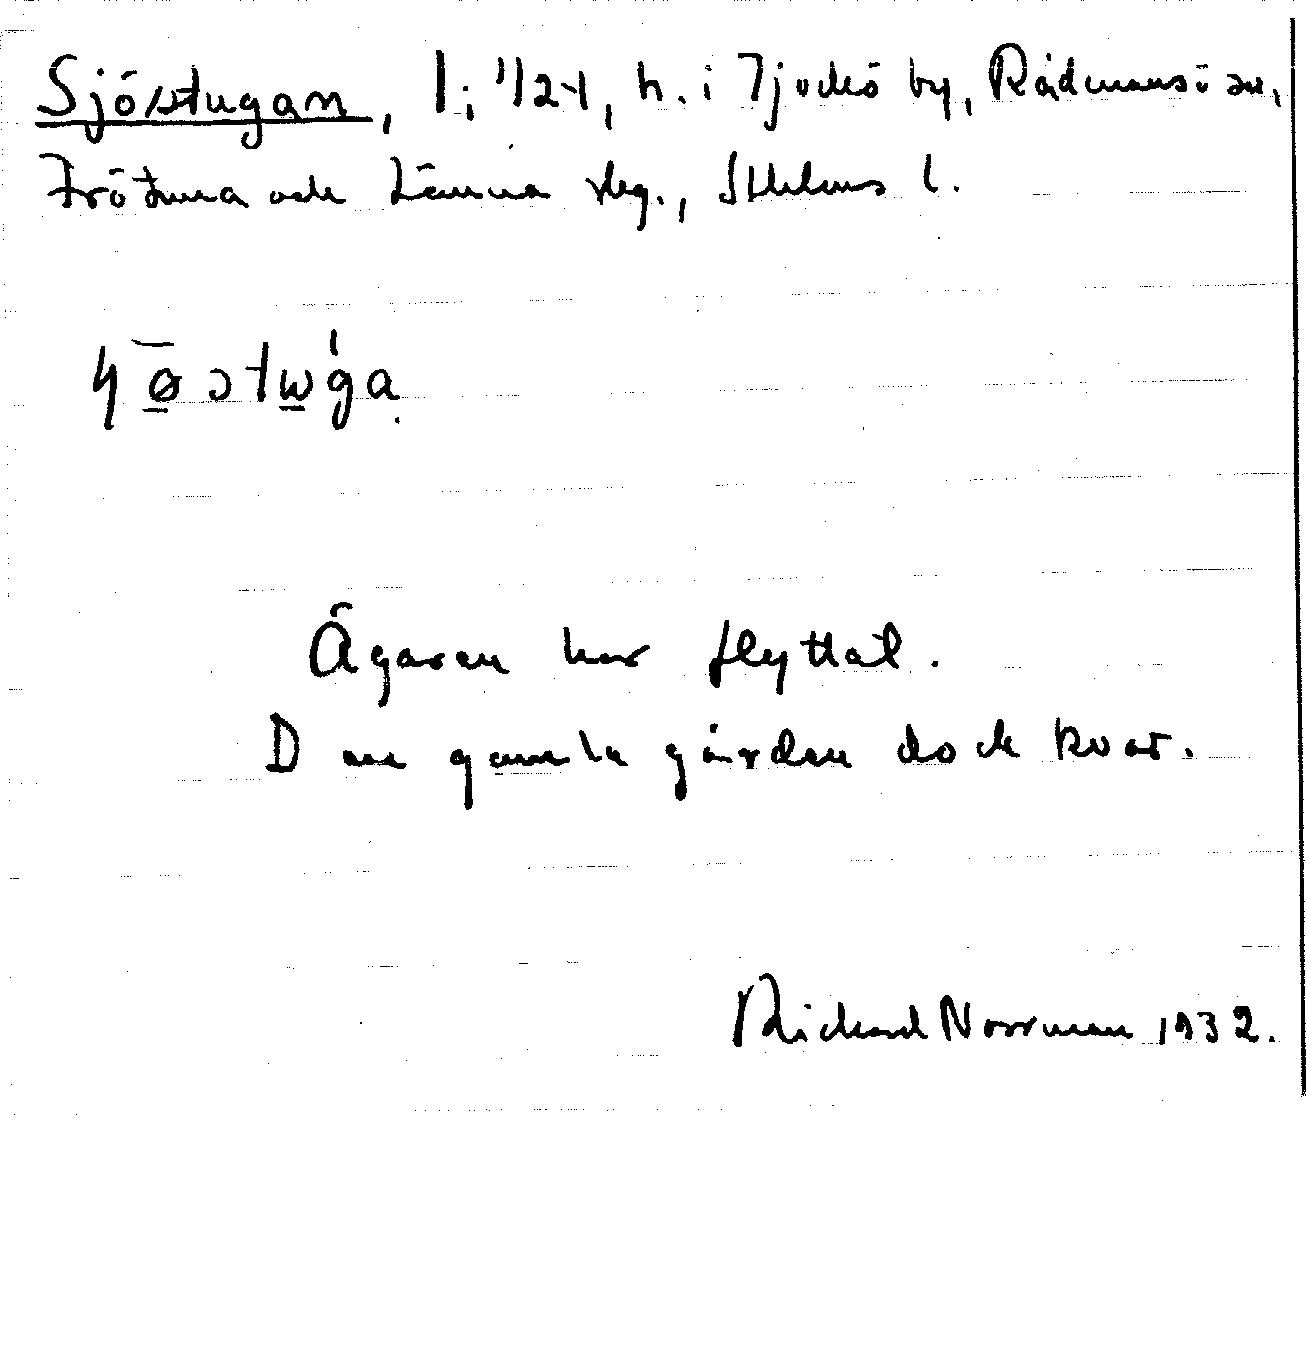 Sjöstugan, 1; 1/24, h. i Tjockö by, Rådmansö sn,
Frötuna och Länna skg., Sthlms l.
Ägaren har flyttat.
Den gamla gården dock kvar.
Rickard Norrman 1932.